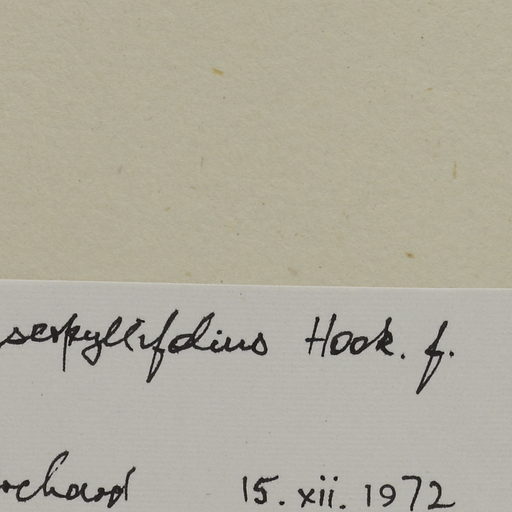 serpyllifolius Hook. f.
rchard 15. xii. 1972